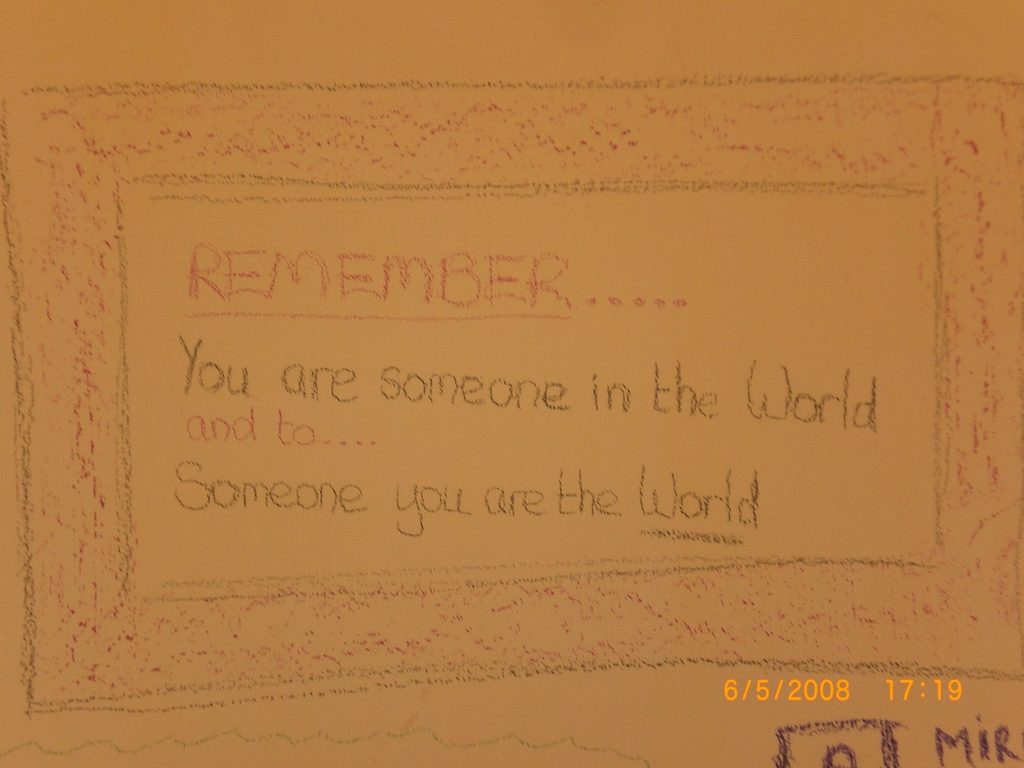 REMEMBER......
You are someone in the World
and to....
Someone you are the World
6/5/2008 17:19